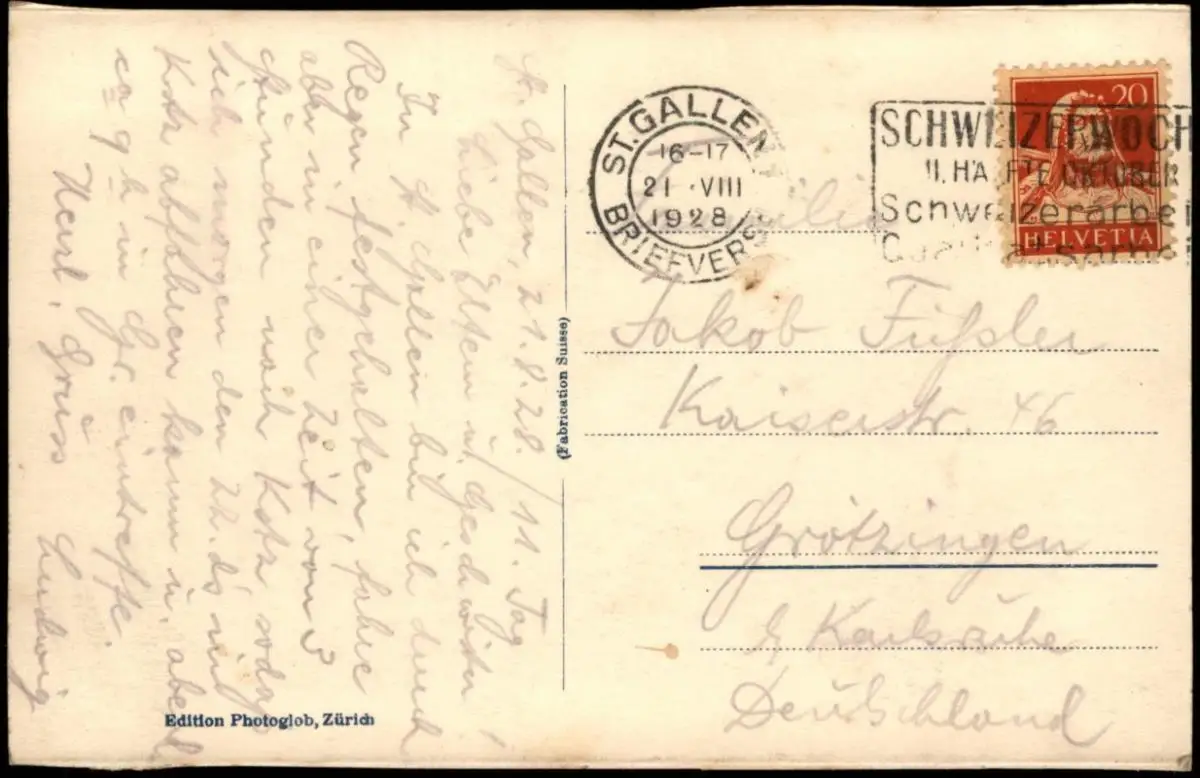 St. Gallen, 21.8.28. / 11. Tag
Liebe Eltern u. Geschwister!
In St Gallen bin ich durch
Regen festgehalten, fahre
abr in einer Zeit von 3
Stunden nach Kstz sodass
ich morgen den 22. ds mit
Kstz abfahren kann u. abend
ca 9 h in Gr. eintreffe.
Herzl. Grüss Ludwig
Edition Photoglob, Zürich
(Fabrication Suisse)
ST. GALLEN
16-17
21 VIII
1928
BRIEFVERS
SCHWEIZERWOCH
II. HÄLFTE OKTOBER
Schweizerarbei
Qualitätsarbei
20
HELVETIA
Familie
Jakob Füßler
Kaiserstr. 46
Grötzingen
b/ Karlsruhe
Deutschland